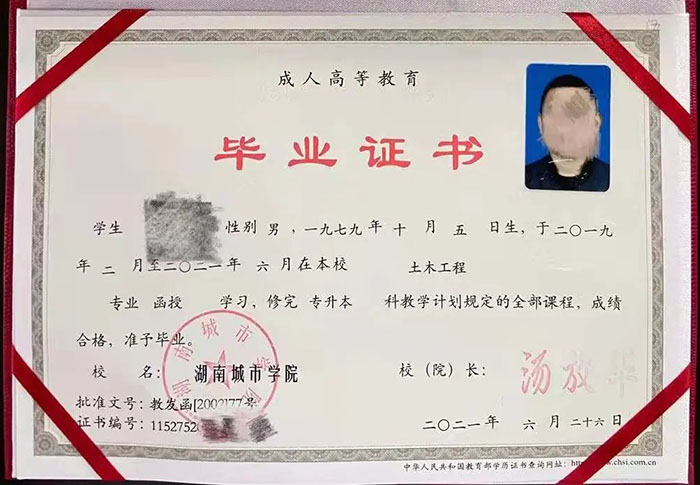 成人高等教育
毕业证书
学生 性别 男，一九七九年 十 月 五 日生，于二〇一九
年 二 月至二〇二一年 六 月在本校 土木工程
专业 函授 学习，修完 专升本 科教学计划规定的全部课程，成绩
合格，准予毕业。
湖南城市学院
校 名： 湖南城市学院 校（院）长： 汤放华
批准文号：教发函[2002]77号
证书编号：1152752 二〇二一年 六 月 二十六日
中华人民共和国教育部学历证书查询网址：http://www.chsi.com.cn